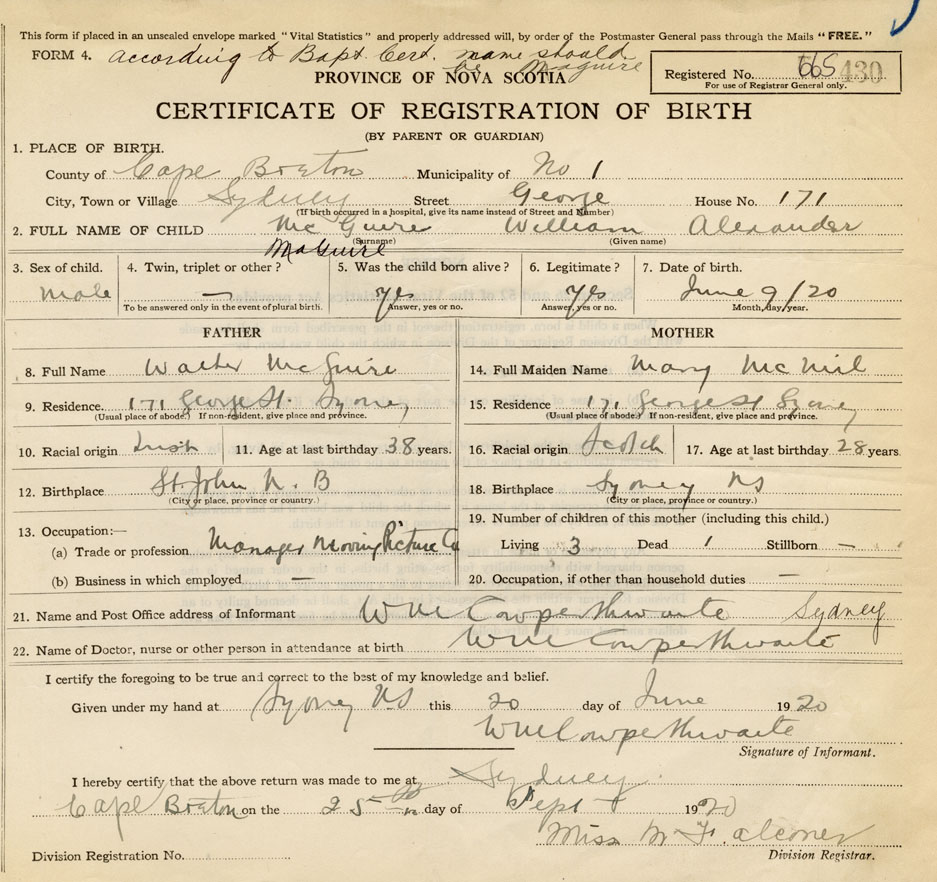 This form if placed in an unsealed envelope marked "Vital Statistics" and properly addressed will, by order of the Postmaster General pass through the Mails "FREE."
FORM 4. according to Bapt. Cert. name should
be Maguire
PROVINCE OF NOVA SCOTIA
Registered No. 665 430
For use of Registrar General only.
CERTIFICATE OF REGISTRATION OF BIRTH
(BY PARENT OR GUARDIAN)
1. PLACE OF BIRTH.
County of Cape Breton Municipality of No 1
City, Town or Village Sydney Street George House No. 171
(If birth occurred in a hospital, give its name instead of Street and Number)
2. FULL NAME OF CHILD Mc Guire William Alexander
(Surname) (Given name)
MaGuire
3. Sex of child. 4. Twin, triplet or other? 5. Was the child born alive? 6. Legitimate? 7. Date of birth.
Male — yes yes June 9/20
To be answered only in the event of plural birth. Answer, yes or no. Answer, yes or no. Month, day, year.
FATHER MOTHER
8. Full Name Walter McGuire 14. Full Maiden Name Mary McNeil
9. Residence. 171 George St. Sydney 15. Residence 171 George St Sydney
(Usual place of abode.) If non-resident, give place and province. (Usual place of abode.) If non-resident, give place and province.
10. Racial origin Irish 11. Age at last birthday 38 years. 16. Racial origin Scotch 17. Age at last birthday 28 years.
12. Birthplace St. John N. B 18. Birthplace Sydney NS
(City or place, province or country.) (City or place, province or country.)
13. Occupation:— 19. Number of children of this mother (including this child.)
(a) Trade or profession Manager Moving Picture Co Living 3 Dead 1 Stillborn —
(b) Business in which employed — 20. Occupation, if other than household duties —
21. Name and Post Office address of Informant WM Cowperthwaite Sydney
22. Name of Doctor, nurse or other person in attendance at birth WM Cowperthwaite
I certify the foregoing to be true and correct to the best of my knowledge and belief.
Given under my hand at Sydney NS this 20 day of June 1920
WM Cowperthwaite
Signature of Informant.
I hereby certify that the above return was made to me at Sydney
Cape Breton on the 25th day of Sept 1920
Miss M Falconer
Division Registration No.
Division Registrar.